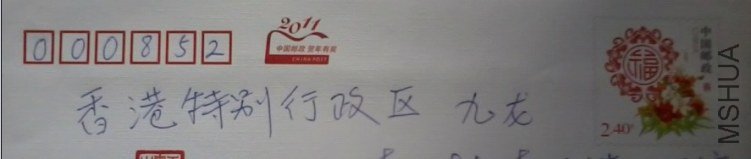 000852
2011
中国邮政 贺年有奖
CHINA POST
福
中国邮政
2.40
MSHUA
香港特别行政区 九龙